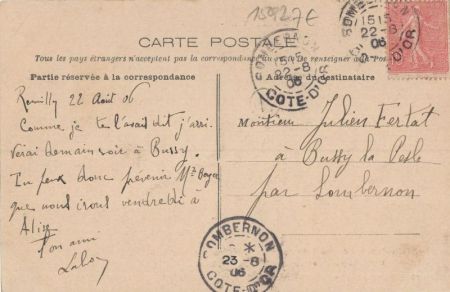 15927E
CARTE POSTALE
Tous les pays étrangers n'acceptent pas la correspondance au recto. (Se renseigner à la Poste)
Partie réservée à la correspondance
Adresse du destinataire
Remilly 22 Août 06
Comme je te l'avait dit j'arri-
verai demain soir à Bussy.
Tu peux donc prévenir Mr
que nous irons vendredi à
Alise
Ton ami
Monsieur Julien Fertat
à Bussy la Pesle
par Sombernon
SOMBERNON
15 15
22 - 8
06
COTE-D'OR
SOMBERNON
1515
22-8
06
D'OR
SOMBERNON
23 - 8
06
COTE-D'OR